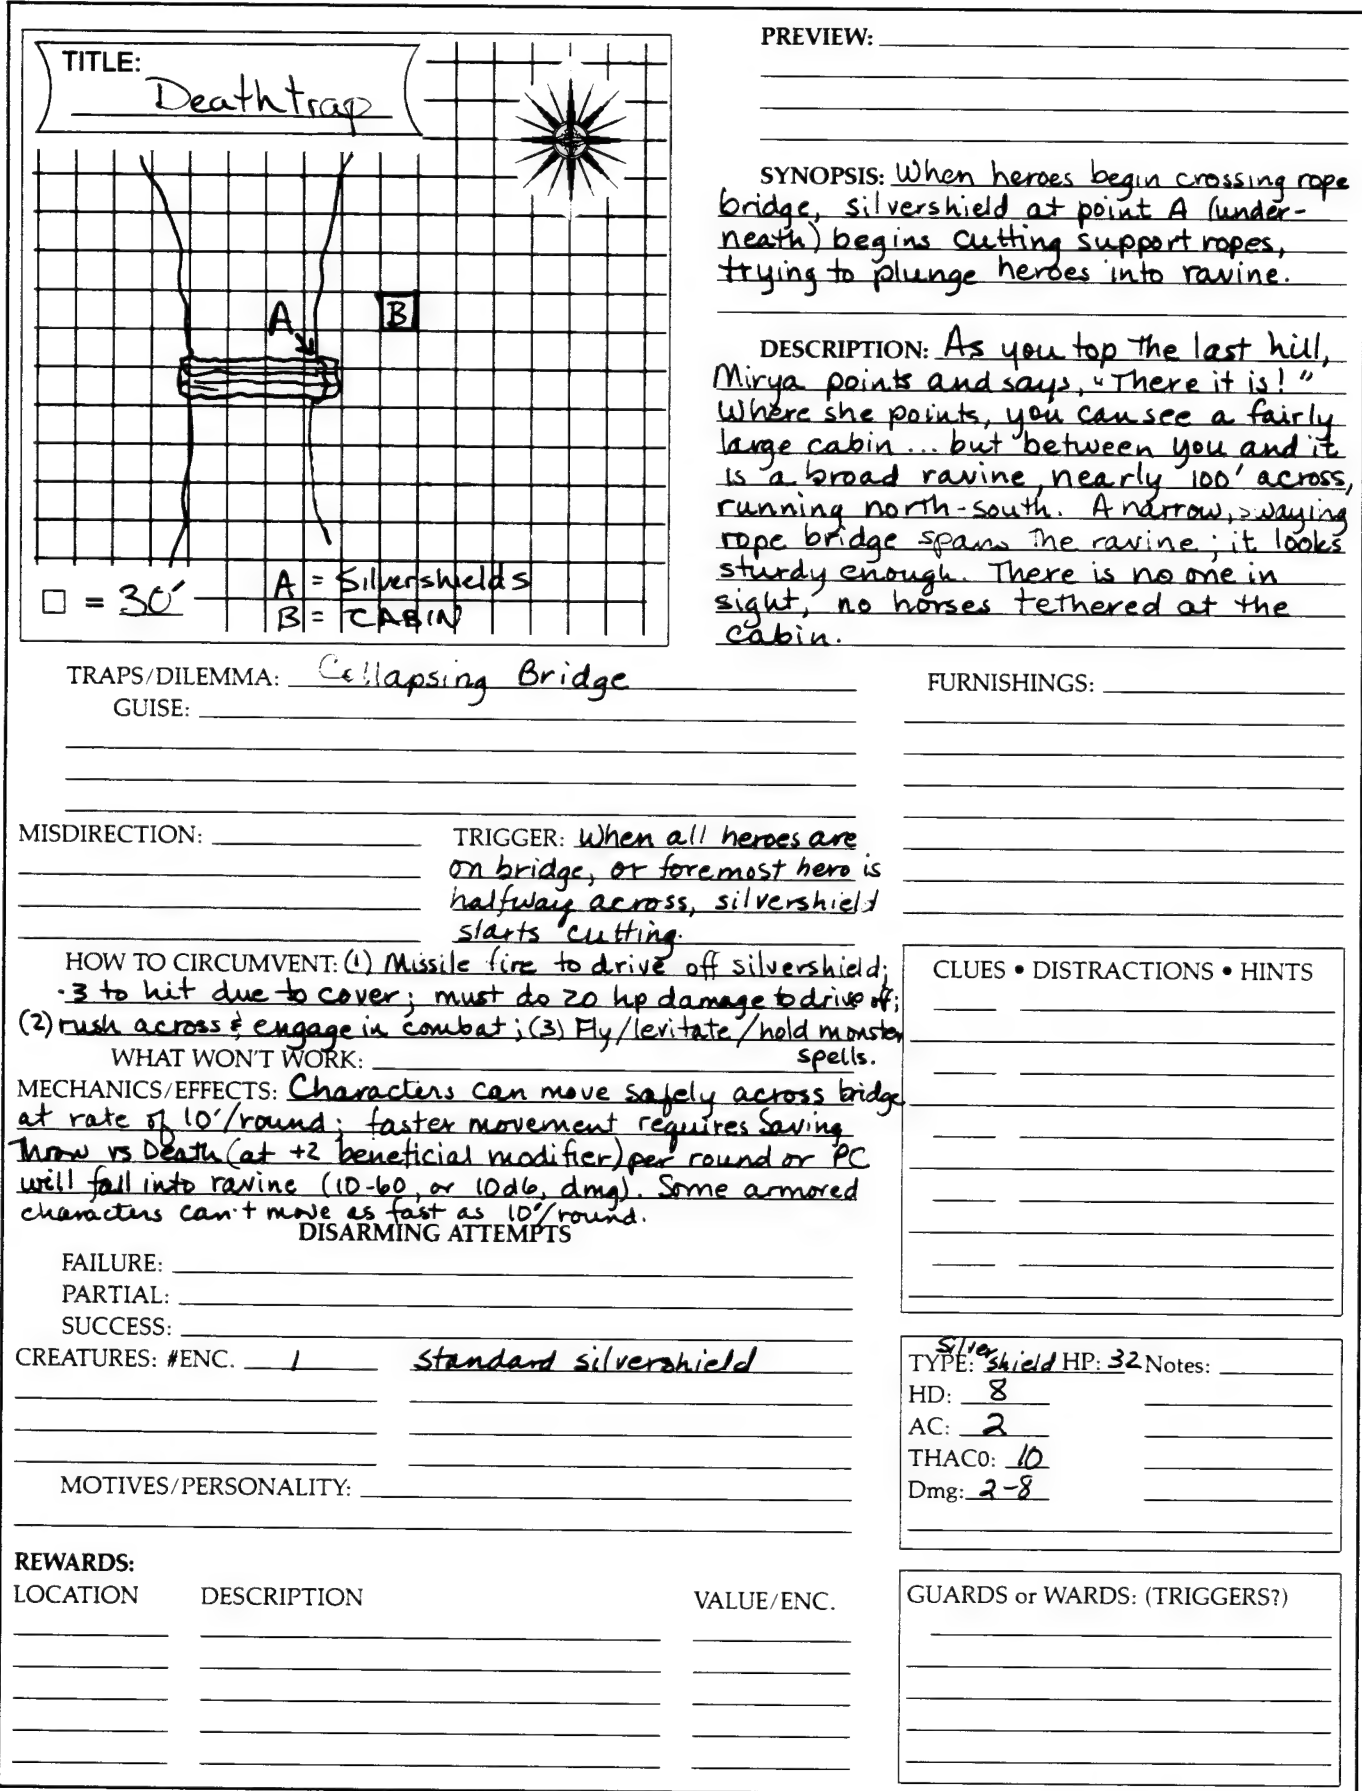 TITLE:
Deathtrap
A
B
□ = 30'
A = Silvershields
B = CABIN
PREVIEW:
SYNOPSIS: When heroes begin crossing rope
bridge, silvershield at point A (under-
neath) begins cutting support ropes,
trying to plunge heroes into ravine.
DESCRIPTION: As you top the last hill,
Mirya points and says, "There it is!"
Where she points, you can see a fairly
large cabin ... but between you and it
is a broad ravine, nearly 100' across,
running north-south. A narrow, swaying
rope bridge spans the ravine; it looks
sturdy enough. There is no one in
sight, no horses tethered at the
cabin.
TRAPS/DILEMMA: Collapsing Bridge
GUISE:
FURNISHINGS:
MISDIRECTION:
TRIGGER: When all heroes are
on bridge, or foremost hero is
halfway across, silvershield
starts cutting.
HOW TO CIRCUMVENT: (1) Missile fire to drive off silvershield;
-3 to hit due to cover; must do 20 hp damage to drive off;
(2) rush across & engage in combat; (3) Fly/levitate/hold monster
spells.
WHAT WON'T WORK:
MECHANICS/EFFECTS: Characters can move safely across bridge
at rate of 10'/round; faster movement requires Saving
Throw vs Death (at +2 beneficial modifier) per round or PC
will fall into ravine (10-60, or 10d6, dmg). Some armored
characters can't move as fast as 10'/round.
DISARMING ATTEMPTS
FAILURE:
PARTIAL:
SUCCESS:
CLUES • DISTRACTIONS • HINTS
CREATURES: #ENC. 1 standard silvershield
MOTIVES/PERSONALITY:
TYPE: Silvershield HP: 32 Notes:
HD: 8
AC: 2
THAC0: 10
Dmg: 2-8
REWARDS:
LOCATION DESCRIPTION VALUE/ENC.
GUARDS or WARDS: (TRIGGERS?)